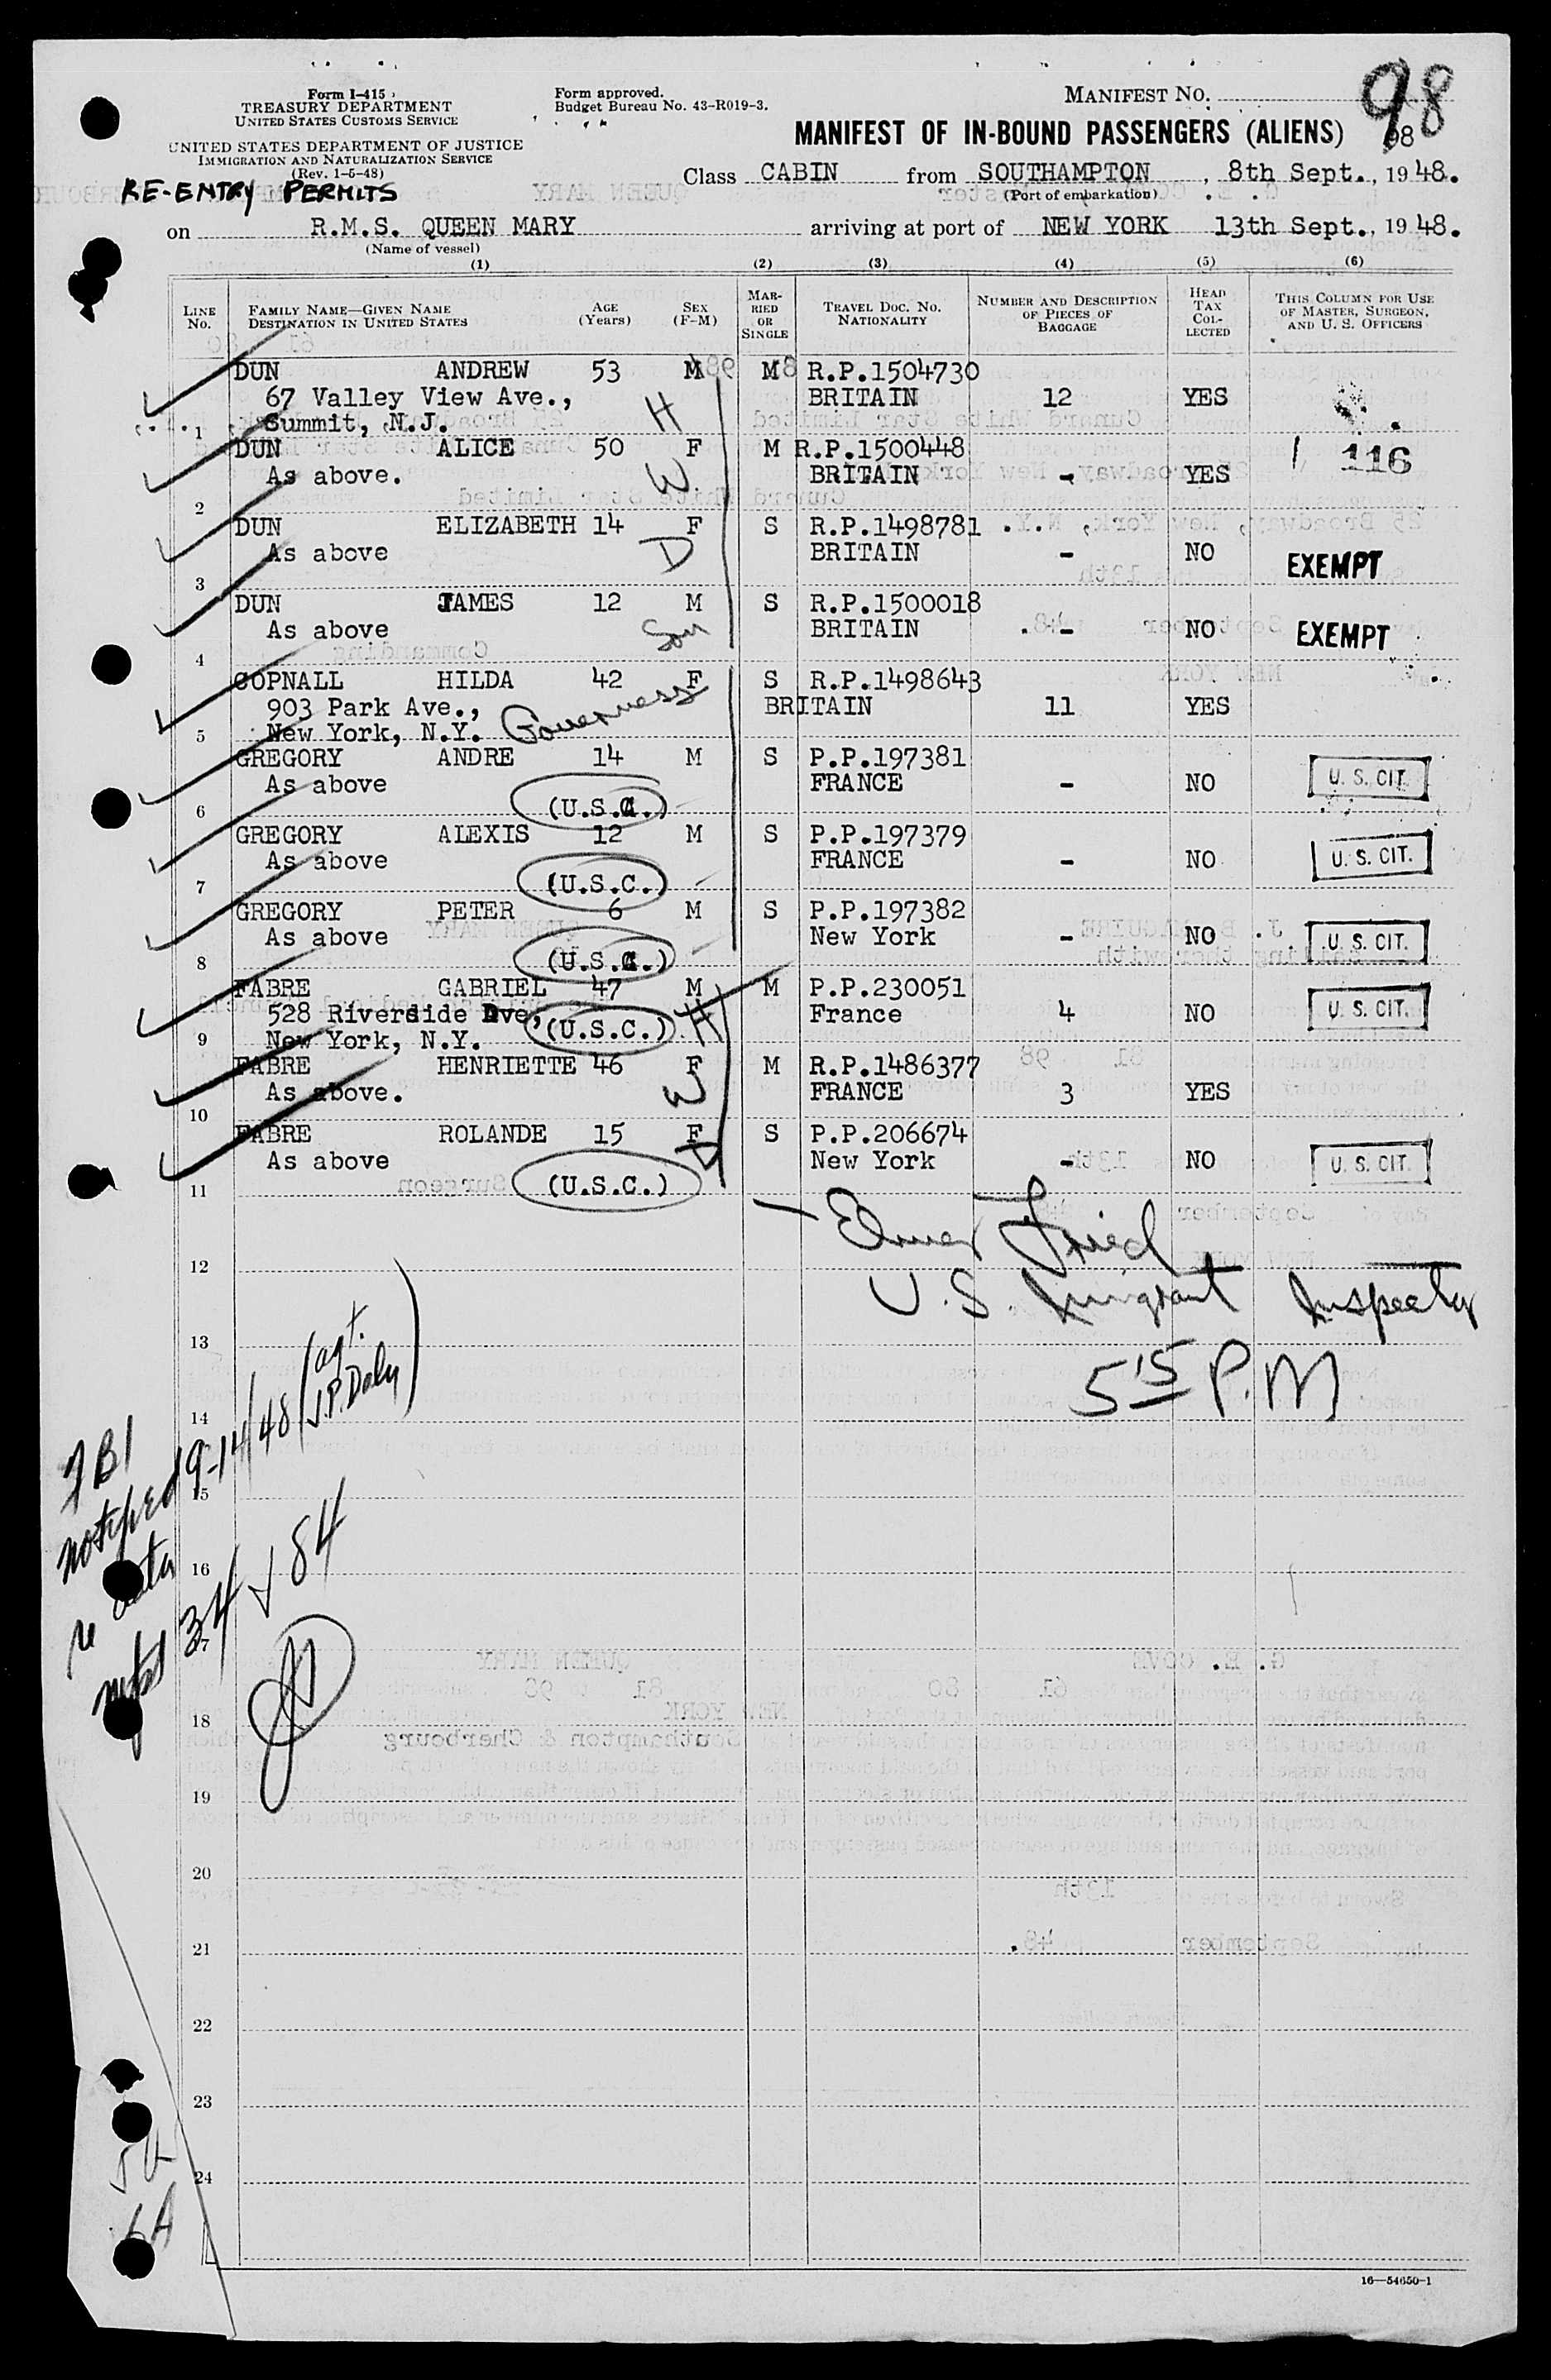 Form I-415
TREASURY DEPARTMENT
UNITED STATES CUSTOMS SERVICE
UNITED STATES DEPARTMENT OF JUSTICE
IMMIGRATION AND NATURALIZATION SERVICE
(Rev. 1-5-48)
RE-ENTRY PERMITS
Form approved.
Budget Bureau No. 43-R019-3.
MANIFEST NO. 98
MANIFEST OF IN-BOUND PASSENGERS (ALIENS) 98
Class CABIN from SOUTHAMPTON, 8th Sept., 1948.
(Port of embarkation)
on R.M.S. QUEEN MARY arriving at port of NEW YORK 13th Sept., 1948.
(Name of vessel)
(1) (2) (3) (4) (5) (6)
LINE No. FAMILY NAME—GIVEN NAME DESTINATION IN UNITED STATES AGE (Years) SEX (F-M) MARRIED OR SINGLE TRAVEL DOC. NO. NATIONALITY NUMBER AND DESCRIPTION OF PIECES OF BAGGAGE HEAD TAX COLLECTED THIS COLUMN FOR USE OF MASTER, SURGEON, AND U. S. OFFICERS
DUN ANDREW 53 M M R.P.1504730
67 Valley View Ave., H BRITAIN 12 YES
1 Summit, N.J.
DUN ALICE 50 F M R.P.1500448 116
As above. W BRITAIN - YES
2
DUN ELIZABETH 14 F S R.P.1498781
As above D BRITAIN - NO EXEMPT
3
DUN JAMES 12 M S R.P.1500018
As above Son BRITAIN - NO EXEMPT
4
COPNALL HILDA 42 F S R.P.1498643
903 Park Ave., Governess BRITAIN 11 YES
5 New York, N.Y.
GREGORY ANDRE 14 M S P.P.197381
As above FRANCE - NO U. S. CIT.
6 (U.S.C.)
GREGORY ALEXIS 12 M S P.P.197379
As above FRANCE - NO U. S. CIT.
7 (U.S.C.)
GREGORY PETER 6 M S P.P.197382
As above New York - NO U. S. CIT.
8 (U.S.C.)
FABRE GABRIEL 47 M M P.P.230051
528 Riverside Dve, (U.S.C.) H France 4 NO U. S. CIT.
9 New York, N.Y.
FABRE HENRIETTE 46 F M R.P.1486377
As above. W FRANCE 3 YES
10
FABRE ROLANDE 15 F S P.P.206674
As above D New York - NO U. S. CIT.
11 (U.S.C.)
Elmer Fried
12
U.S. Immigrant Inspector
13
5 15 P.M
14
FBI
notified 9-14/48 (agt. J.P. Daly)
re data
34 + 84
15
16
17
18
19
20
21
22
23
24
6A
16—54650-1